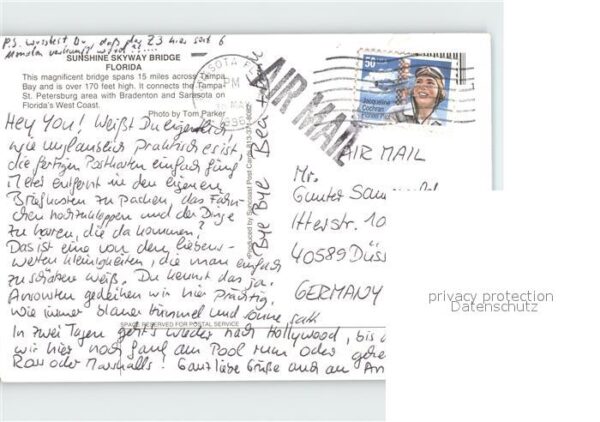 P.S. wusstest Du daß der Z3 hier seit 6
Monaten verkauft wird
SUNSHINE SKYWAY BRIDGE
FLORIDA
This magnificent bridge spans 15 miles across Tampa
Bay and is over 170 feet high. It connects the Tampa-
St. Petersburg area with Bradenton and Sarasota on
Florida's West Coast.
Photo by Tom Parker
Hey You! Weißt Du eigentlich,
wie unglaublich praktisch es ist
die fertigen Postkarten einfach fünf
Meter entfernt in den eigenen
Briefkasten zu packen, das Fähn-
chen hochzuklappen und der Dinge
zu harren, die da kommen?
Das ist eine von den liebens-
werten Kleinigkeiten, die man einfach
zu schätzen weiß. Du kennst das ja.
Ansonsten gedeihen wir hier prächtig.
Wie immer blauer Himmel und Sonne satt
SPACE RESERVED FOR POSTAL SERVICE
In zwei Tagen geht's wieder nach Hollywood, bis
wir hier noch faul am Pool rum oder
Ross oder Marshalls! Ganz liebe Grüße und an
Bye Bye
Produced by Suncoast Post Cards
PM
1996
AIR MAIL
50
Jacqueline
Cochran
Pioneer Pilot
AIR MAIL
Mr.
Gunter
Itterstr. 10
40589 Düss
GERMANY
privacy protection
Datenschutz